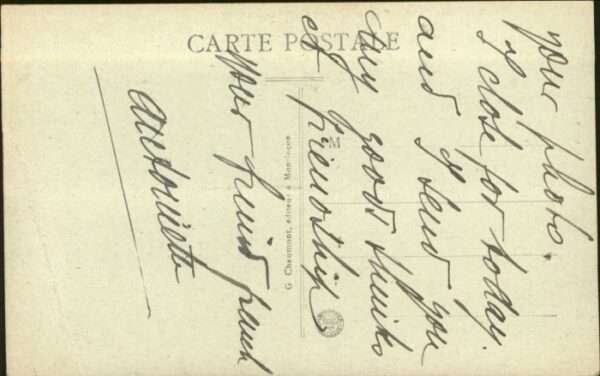 CARTE POSTALE
your photo.
I close for today.
and I send you
my good thinks
of friendship
your friend french
Antoinette
M
G Chaumont, éditeur à